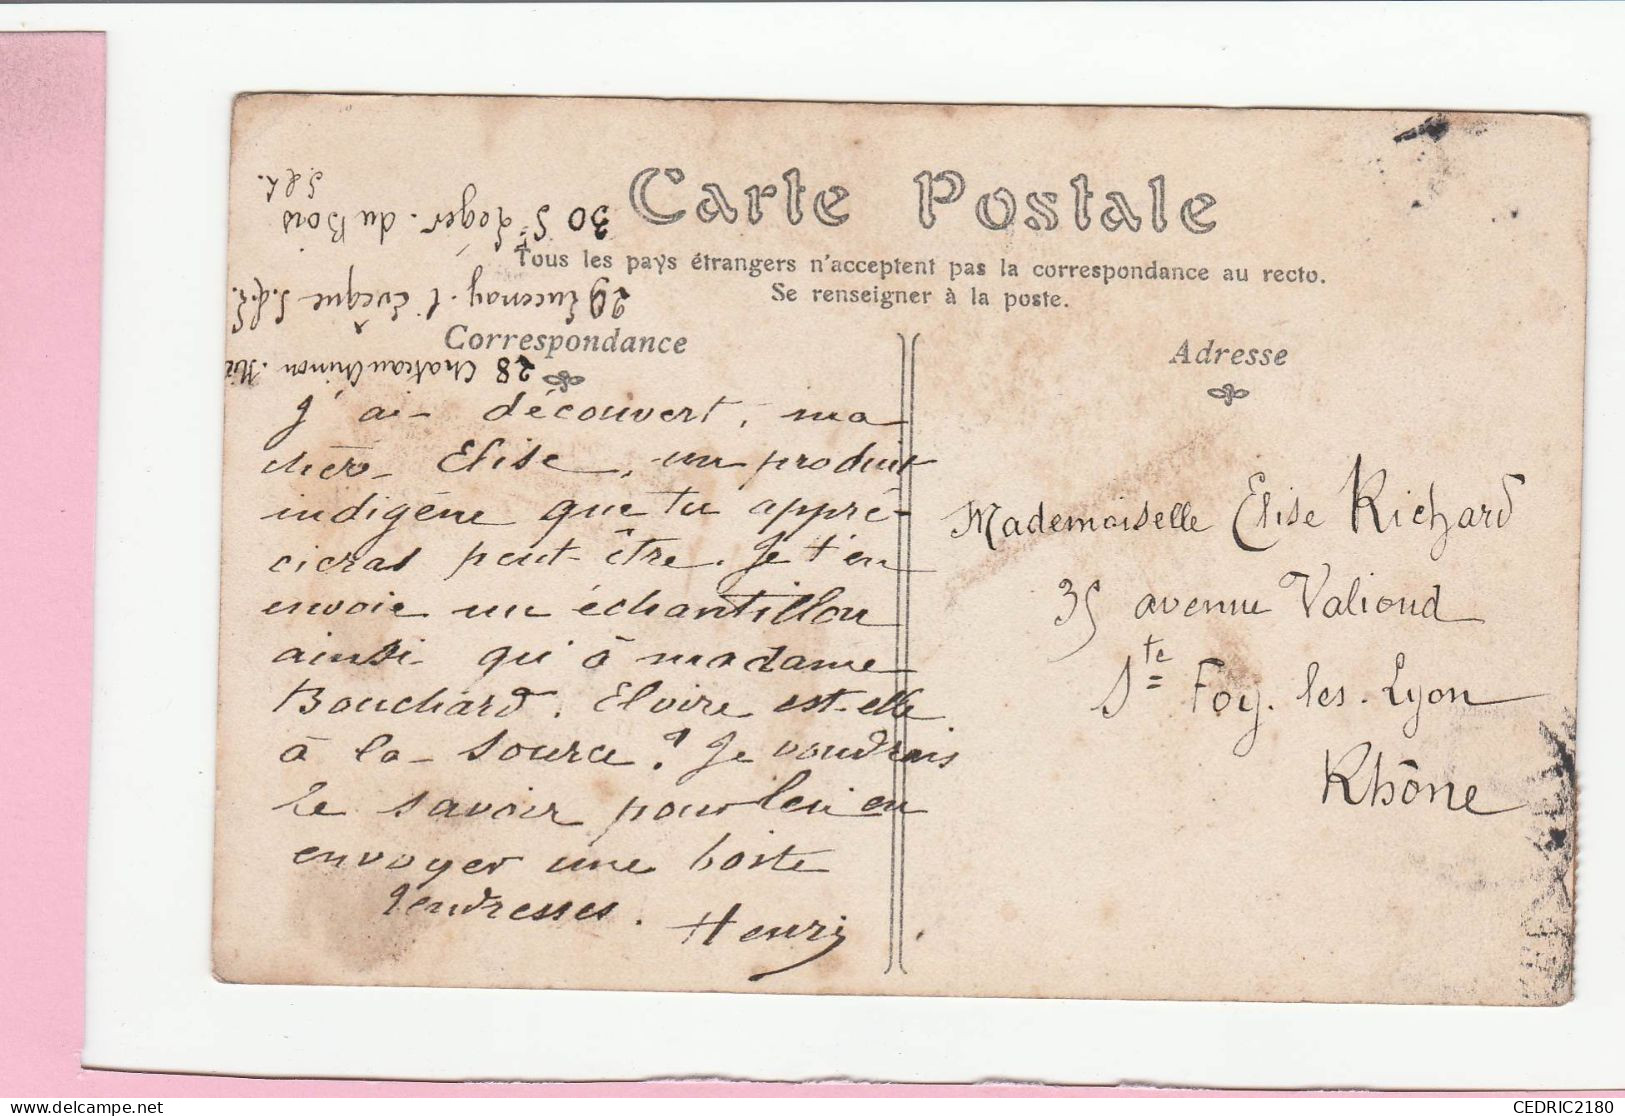 Carte Postale
Tous les pays étrangers n'acceptent pas la correspondance au recto.
Se renseigner à la poste.
Correspondance
28 Chateau Chinon.
29 Lucenay-l'Evêque S.&L.
30 St Léger. du Bois
S&L.
J'ai découvert, ma
chère Elise, un produit
indigène que tu appré-
cieras peut-être. Je t'en
envoie un échantillon
ainsi qu'à madame
Bouchard. Elvire est-elle
à la source? Je voudrais
le savoir pour lui en
envoyer une boite
Tendresses.
Henri
Adresse
Mademoiselle Elise Richard
35 avenue Valioud
Ste Foy. les. Lyon
Rhône
CEDRIC2180